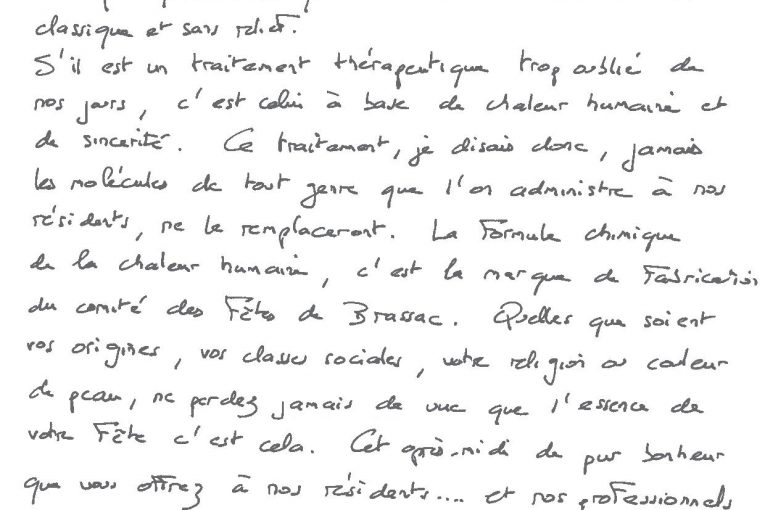 classique et sans relief.
S'il est un traitement thérapeutique trop oublié de
nos jours, c'est celui à base de chaleur humaine et
de sincérité. Ce traitement, je disais donc, jamais
les molécules de tout genre que l'on administre à nos
résidents, ne le remplaceront. La Formule chimique
de la chaleur humaine, c'est la marque de Fabrication
du comité des Fêtes de Brassac. Quelles que soient
vos origines, vos classes sociales, votre religion ou couleur
de peau, ne perdez jamais de vue que l'essence de
votre Fête c'est cela. Cet après-midi de pur bonheur
que vous offrez à nos résidents.... et nos professionnels